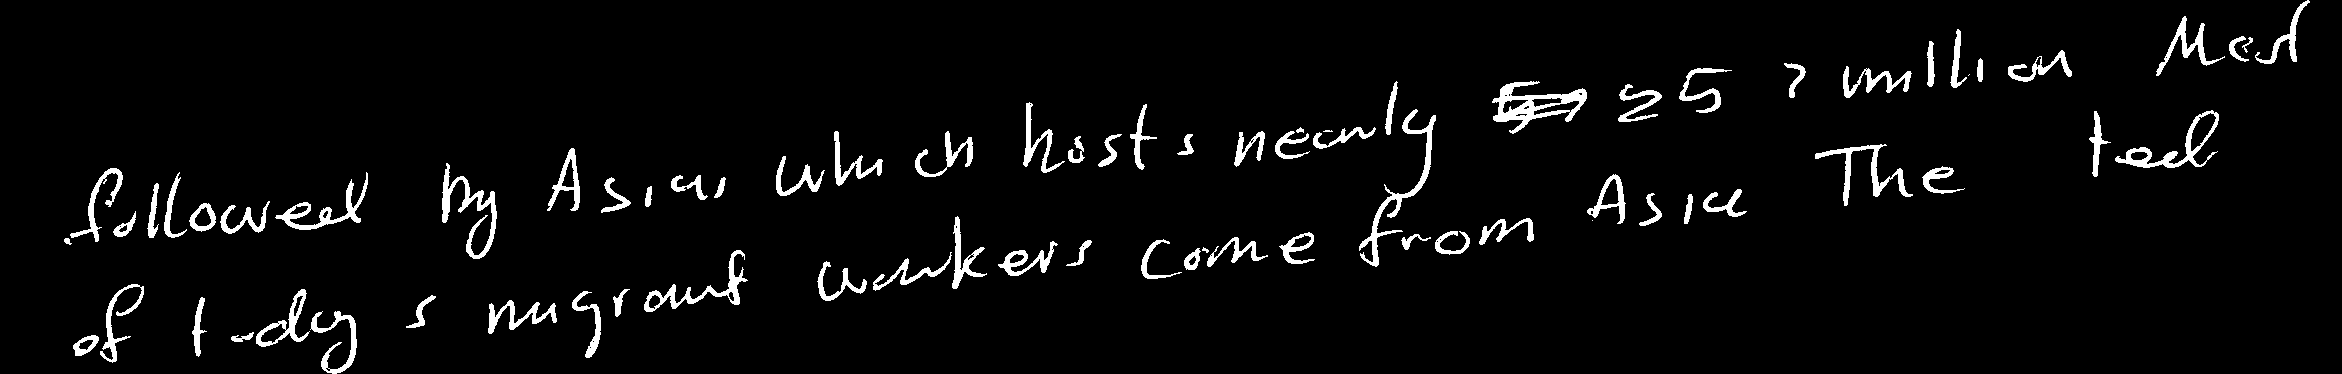 followed by Asia, which hosts nearly 25 7 million Most
of today s migrant workers come from Asia The